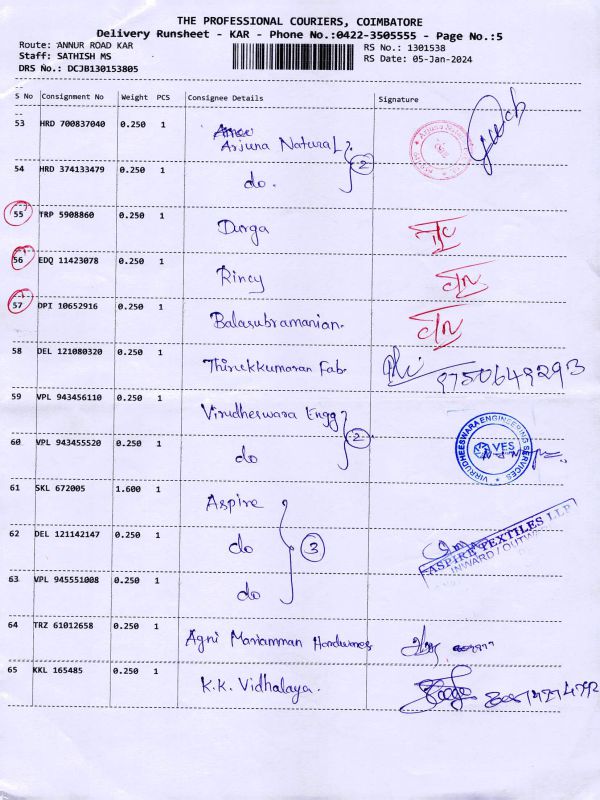 THE PROFESSIONAL COURIERS, COIMBATORE
Delivery Runsheet - KAR - Phone No.:0422-3505555 - Page No.:5
Route: ANNUR ROAD KAR RS No.: 1301538
Staff: SATHISH MS RS Date: 05-Jan-2024
DRS No.: DCJB130153805
S No Consignment No Weight PCS Consignee Details Signature
53 HRD 700837040 0.250 1 Arjuna Natural
54 HRD 374133479 0.250 1 do. 2
55 TRP 5908860 0.250 1 Durga
56 EDQ 11423078 0.250 1 Rincy
57 DPI 10652916 0.250 1 Balasubramanian.
58 DEL 121080320 0.250 1 Thirukkumaran Fab. 9750649293
59 VPL 943456110 0.250 1 Virudheswara Engg
VIRRUDHEESWARA ENGINEERING SERVICES
YES
60 VPL 943455520 0.250 1 do 2
61 SKL 672005 1.600 1 Aspire
62 DEL 121142147 0.250 1 do 3
ASPIRE TEXTILES LLP
INWARD / OUTW
63 VPL 945551008 0.250 1 do
64 TRZ 61012658 0.250 1 Agni Mariamman Hardwares
65 KKL 165485 0.250 1 K.K. Vidhalaya.